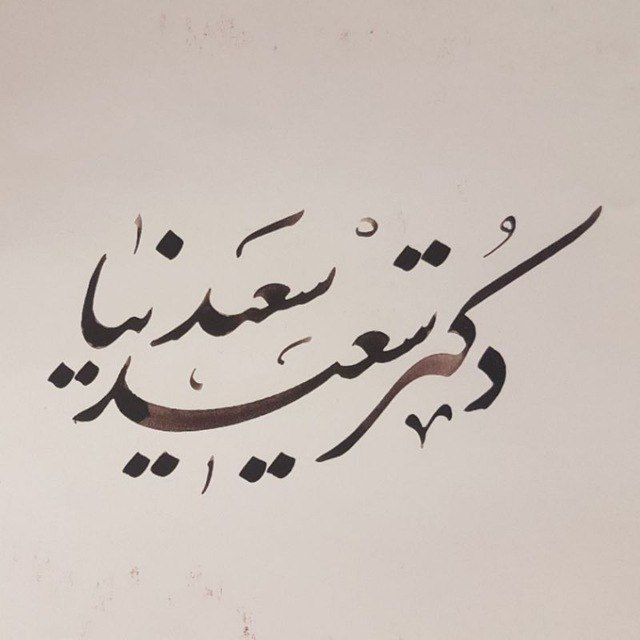 دکتر سعید سعیدنیا